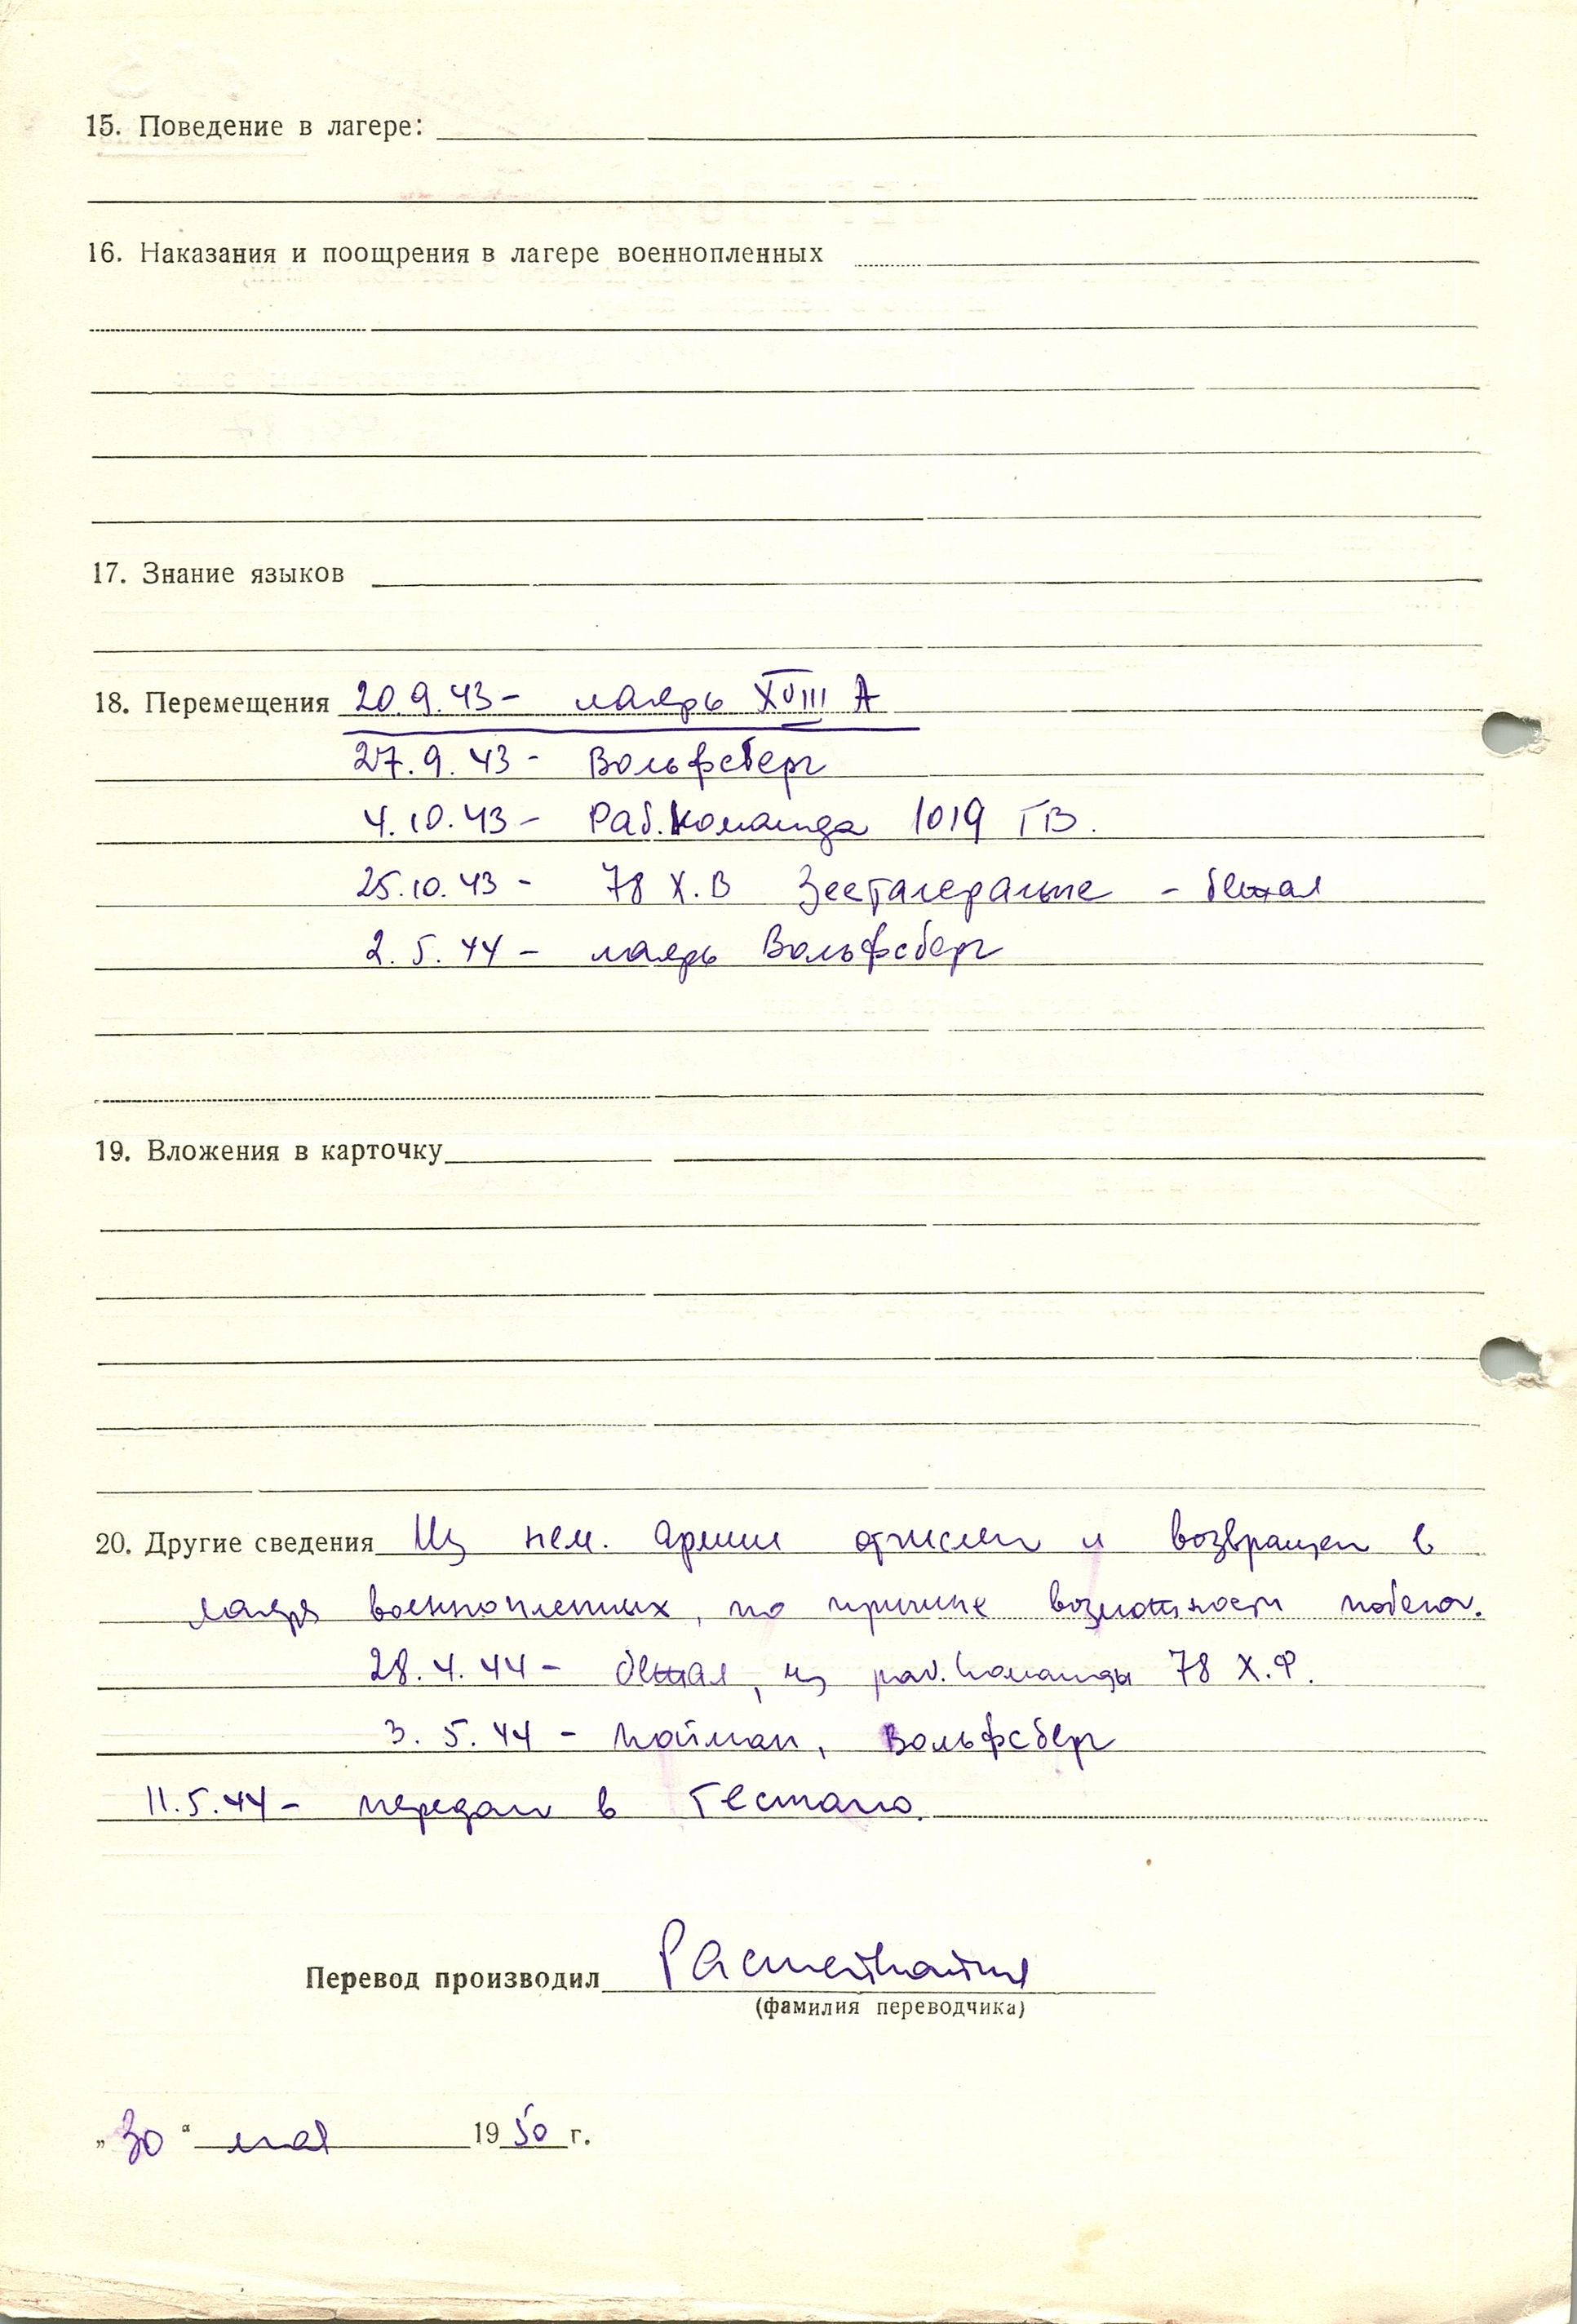 15. Поведение в лагере:
16. Наказания и поощрения в лагере военнопленных
17. Знание языков
18. Перемещения 20.9.43 – лагерь XVIII A
27.9.43 – Вольфсберг
4.10.43 – Раб. команда 1019 ГВ.
25.10.43 – 78 Х.В – бежал
2.5.44 – лагерь Вольфсберг
19. Вложения в карточку
20. Другие сведения Из нем. армии отчислен и возвращен в
лагерь военнопленных, по причине возможности побега.
28.4.44 – бежал, из раб. команды 78 Х.Ф.
3.5.44 – пойман, Вольфсберг
11.5.44 – передан в Гестапо.
Перевод производил
(фамилия переводчика)
„30“ мая 1950 г.